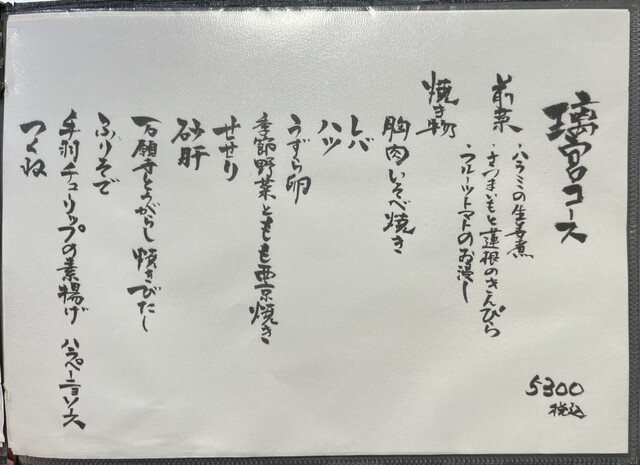 璃宮コース
前菜 ・ハラミの生姜煮
・さつまいもと蓮根のきんぴら
・フルーツトマトのお浸し
焼き物
胸肉いそべ焼き
レバ
ハツ
うずら卵
季節野菜ともも西京焼き
せせり
砂肝
万願寺とうがらし焼きびたし
ふりそで
手羽チューリップの素揚げ ハラペーニョソース
つくね
5300
税込